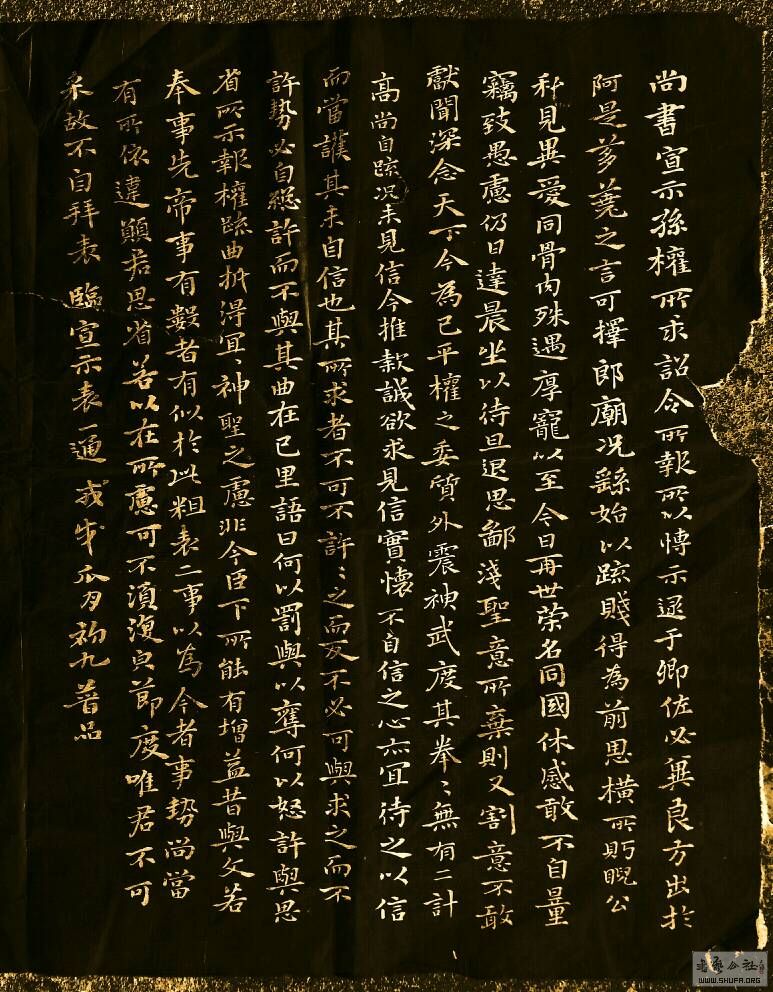 尚書宣示孫權所求詔令所報所以博示逮于卿佐必冀良方出於
阿是芻蕘之言可擇郎廟況繇始以疏賤得為前恩橫所眄睨公
私見異愛同骨肉殊遇厚寵以至今日再世榮名同國休感敢不自量
竊致愚慮仍日達晨坐以待旦退思鄙淺聖意所棄則又割意不敢
獻聞深念天下今為已平權之委質外震神武度其拳〻無有二計
高尚自疏況未見信今推款誠欲求見信實懷不自信之心亦宜待之以信
而當護其未自信也其所求者不可不許〻之而反不必可與求之而不
許勢必自絕許而不與其曲在己里語曰何以罰與以奪何以怒許與思
省所示報權疏曲折得宜〻神聖之慮非今臣下所能有增益昔與文若
奉事先帝事有數者有似於此粗表二事以為今者事勢尚當
有所依違願君思省若以在所慮可不須復與節度唯君不可
采故不自拜表 臨宣示表一通 戊戌瓜月初九普品
WWW.SHUFA.ORG